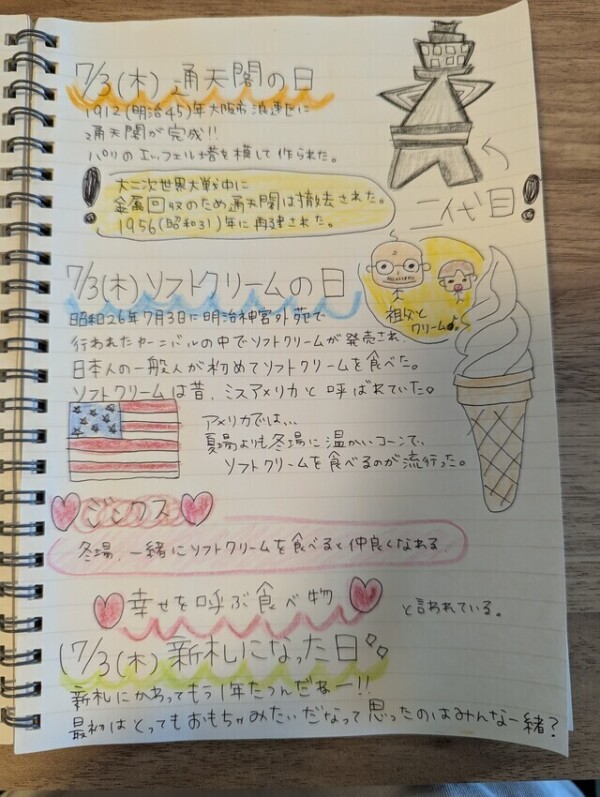 7/3(木)通天閣の日
1912(明治45)年大阪市浪速区に
通天閣が完成!!
パリのエッフェル塔を模して作られた。
二代目
大二次世界大戦中に
金属回収のため通天閣は撤去された。
1956(昭和31)年に再建された。
7/3(木)ソフトクリームの日
祖父と
クリームよ。
昭和26年7月3日に明治神宮外苑で
行われたカーニバルの中でソフトクリームが発売され、
日本人の一般人が初めてソフトクリームを食べた。
ソフトクリームは昔、ミスアメリカと呼ばれていた。
アメリカでは、、、
夏場よりも冬場に温かいコーンで、
ソフトクリームを食べるのが流行った。
ジンクス
冬場、一緒にソフトクリームを食べると仲良くなれる。
幸せを呼ぶ食べ物 と言われている。
(7/3(木)新札になった日
新札にかわってもう1年たつんだねー!!
最初はとってもおもちゃみたいだなって思ったのはみんな一緒?